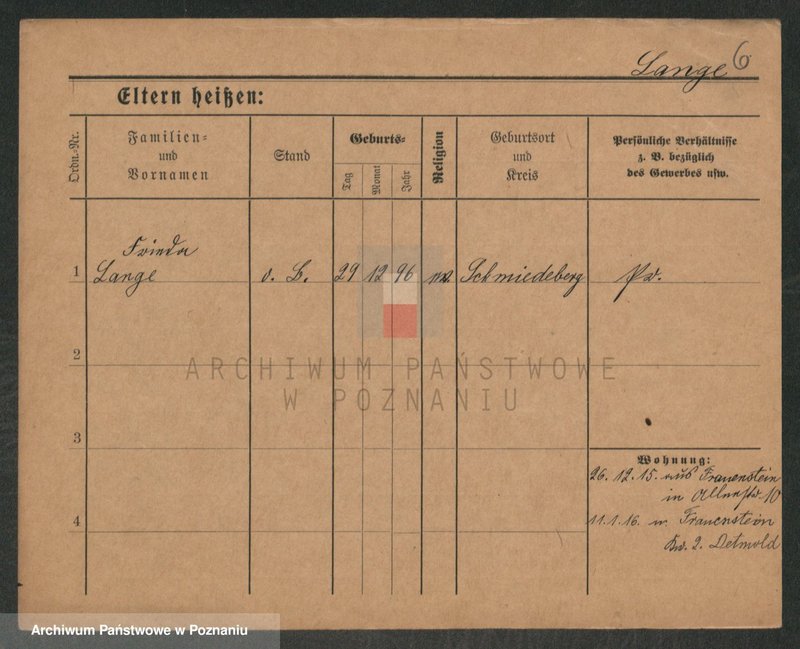 Lange 6
Eltern heißen:
Ordn.-Nr.
Familien- und Vornamen
Stand
Geburts-
Tag
Monat
Jahr
Religion
Geburtsort und Kreis
Persönliche Verhältnisse
z. B. bezüglich
des Gewerbes usw.
Frieda
1 Lange o. B. 29 12 96 Schmiedeberg Pr.
2
ARCHIWUM PAŃSTWOWE
W POZNANIU
3
Wohnung:
26. 12. 15. aus Frauenstein
in 10
4
11. 1. 16. n. Frauenstein
2. Detmold
Archiwum Państwowe w Poznaniu